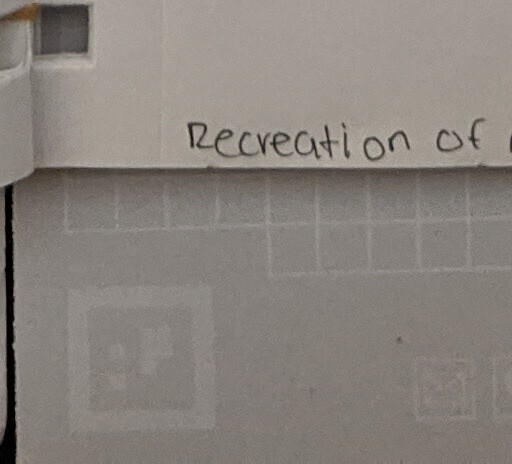 Recreation of